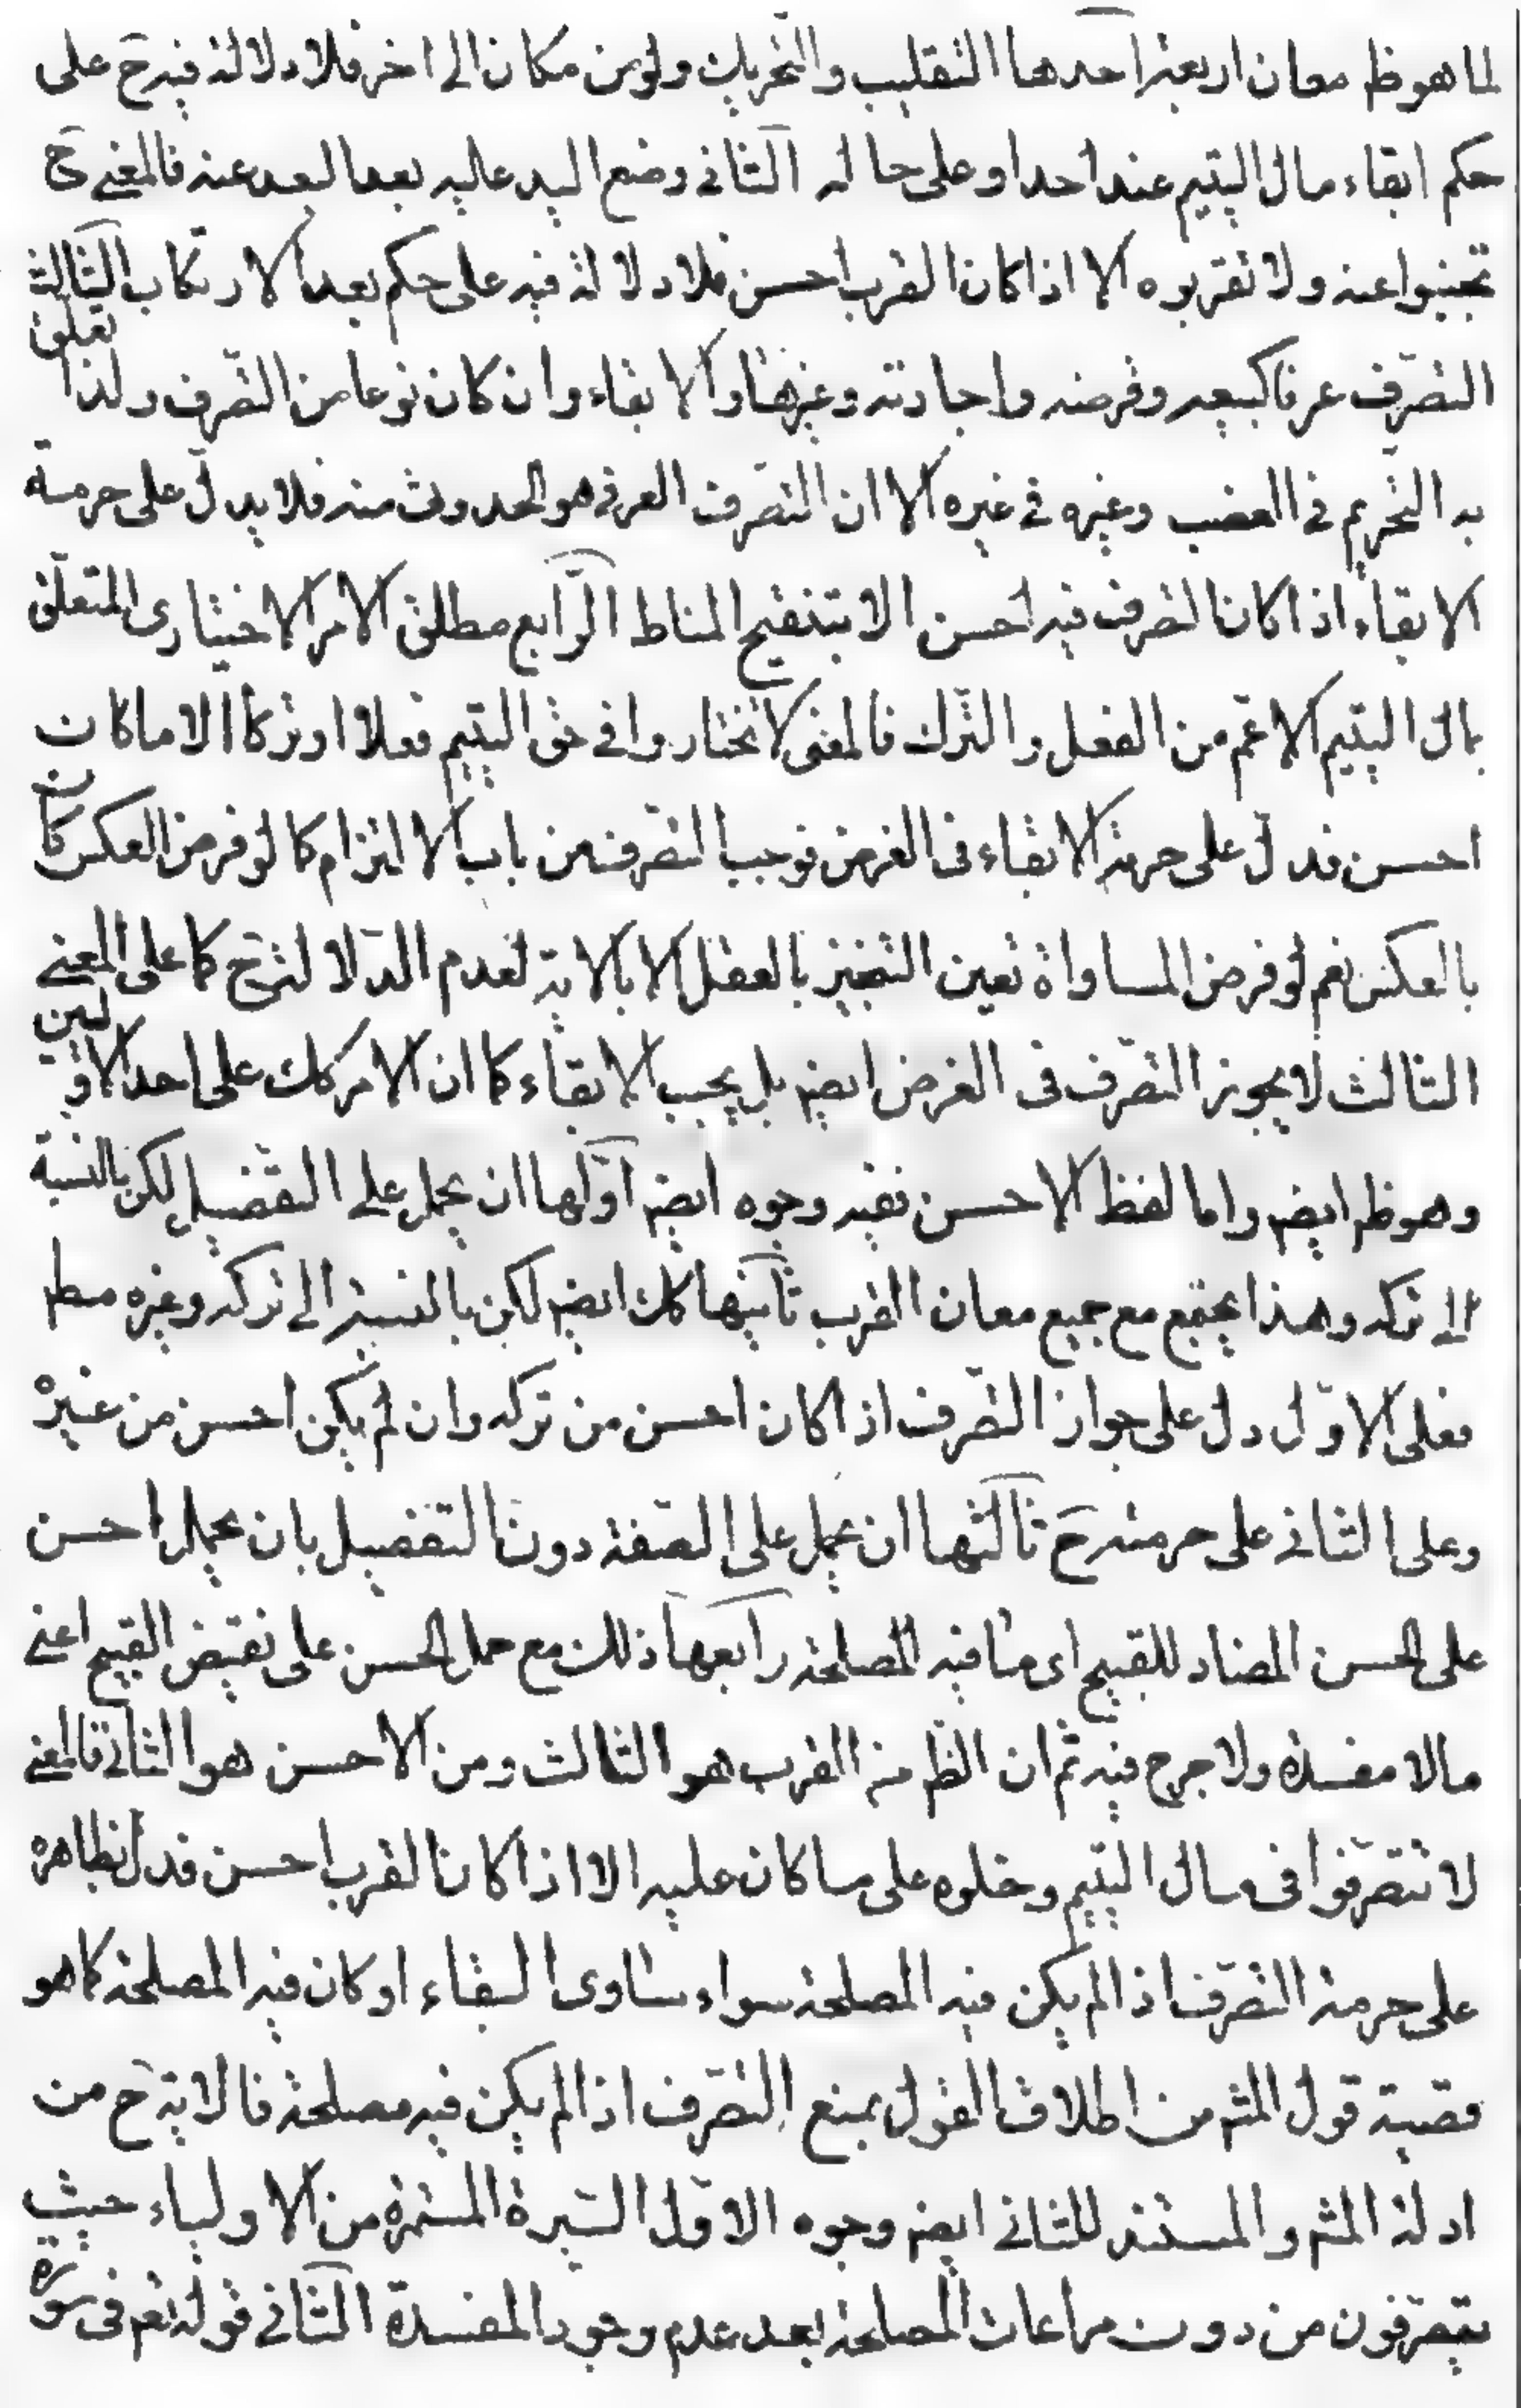 لما هو ظ معان اربعة احدها التقليب والتحريك ولو من مكان الى اخر فلا دلالة فيه ح على
حكم ابقاء مال اليتيم عند احد او على حاله الثانى وضع اليد عليه بعد البعد عنه فالمعنى ح
تجنبوا عنه ولا تقربوه الا اذا كان القرب احسن فلا دلالة فيه على حكم بعد الارتكاب الثالث
التصرف عرفا كبيعه وقرضه واجارته وغيرها والابقاء وان كان نوعا من التصرف ولذا تعلق
به التحريم فى الغصب وغيره فى غيره الا ان التصرف العرفى هو الحدوث منه فلا يدل على حرمة
الابقاء اذا كان التصرف فيه احسن الا بتنقيح المناط الرابع مطلق الامر الاختيارى المتعلق
بمال اليتيم الاعم من الفعل والترك فالمعنى لا تختاروا فى حق اليتيم فعلا او تركا الا ما كان
احسن فدل على حرمة الابقاء فى الفرض فوجب التصرف من باب الالتزام كما لو فرض العكس كان
بالعكس نعم لو فرض المساواة تعين التخيير بالعقل لا بالاية لعدم الدلالة ح كما على المعنى
الثالث لا يجوز التصرف فى الفرض ايضا بل يجب الابقاء كما ان الامر كك على احد الاولين
وهو ظ ايضا واما لفظ الاحسن ففيه وجوه ايضا اولها ان يحمل على التفضيل لكن بالنسبة
الى تركه وهذا يجتمع مع جميع معان القرب ثانيها كك ايضا لكن بالنسبة الى تركه وغيره مط
فعلى الاول دل على جواز التصرف اذا كان احسن من تركه وان لم يكن احسن من غيره
وعلى الثانى على حرمته ح ثالثها ان يحمل على الصفة دون التفضيل بان يحمل احسن
على الحسن المضاد للقبيح اى ما فيه المصلحة رابعها ذلك مع حمل الحسن على نقيض القبيح اعنى
ما لا مفسدة ولا حرج فيه ثم ان الظ من القرب هو الثالث ومن الاحسن هو الثانى فالمعنى
لا تتصرفوا فى مال اليتيم وخلوه على ما كان عليه الا اذا كان القرب احسن فدل بظاهره
على حرمة التصرف اذا لم يكن فيه المصلحة سواء ساوى البقاء او كان فيه المصلحة كما هو
قضية قول المش من اطلاق القول بمنع التصرف اذا لم يكن فيه مصلحة فالاية ح من
ادلة المش والمستند للثانى ايضا وجوه الاول السيرة المستمرة من الاولياء حيث
يتصرفون من دون مراعات المصلحة بعد عدم وجود المفسدة الثانى قوله نعم فى سورة